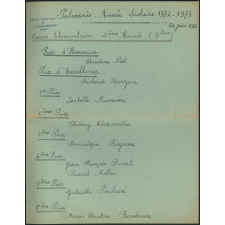 Palmarès - Année Scolaire 1972-1973
24 juin 1973
Cours Elémentaire 2ème Année
Prix d'Honneur
Christine
Prix d'Excellence
Richard
1er Prix
Isabelle
2ème Prix
Thierry Alexandre
3ème Prix
Dominique
4ème Prix
Jean François Duval
Pascal Mellon
5ème Prix
Gabrielle Poulain
6ème Prix
Marie-Christine